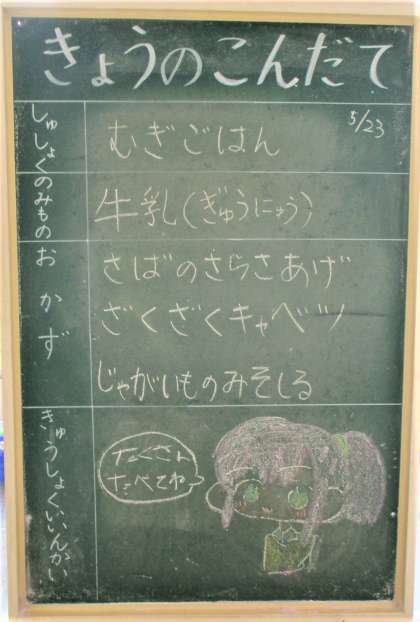 きょうのこんだて
5/23
しゅしょく
むぎごはん
のみもの
牛乳(ぎゅうにゅう)
おかず
さばのさらさあげ
ざくざくキャベツ
じゃがいものみそしる
きゅうしょくいいんかい
たくさん
たべてね